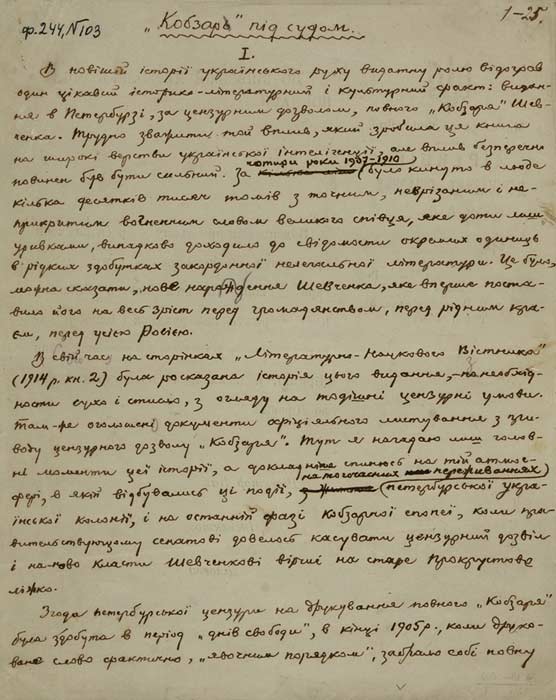 ф. 244, №103
1–25.
„Кобзарь" під судом.
I.
В новішій історії українського руху видатну ролю відограв
один цікавий історико-літературний і культурний факт: видан-
ня в Петербурзі, за цензурним дозволом, повного „Кобзаря" Шев-
ченка. Трудно зважити той вплив, який зробила ця книга
на широкі верстви української інтелігенції, але вплив безперечно
чотири роки 1907–1910
повинен був бути сильний. За (було кинуто в люде
кілька десятків тисяч томів з точним, неврізаним і не-
прикритим вогненним словом великого співця, яке доти лиш
уривками, випадково доходило до свідомости окремих одиниць
в рідких здобутках закордонної нелегальної літератури. Це було,
можна сказати, нове народження Шевченка, яке вперше поста-
вило його на весь зріст перед громадянством, перед рідним кра-
єм, перед усією Росією.
В свій час на сторінках „Літературно-Наукового Вістника"
(1914 р. кн. 2) була росказана історія цього видання, – по необхід-
ности сухо і стисло, з огляду на тодішні цензурні умови.
Там-же оголошені документи офіціяльного листування з при-
воду цензурного дозволу „Кобзаря". Тут я нагадаю лиш голов-
ні моменти цеї історії, а докладніше спинюсь на тій атмос-
на тогочасних переживаннях)
фері, в якій відбувались ці події, (петербурської укра-
їнської колонії, і на останній фазі кобзарної епопеї, коли пра-
вительствующому сенатові довелось касувати цензурний дозвіл
і наново класти Шевченкові вірші на старе Прокрустове
ліжко.
Згода петербурської цензури на друкування повного „Кобзаря"
була здобута в період „днів свободи", в кінці 1905 р., коли друко-
ване слово фактично, „явочним порядком", забрало собі повну